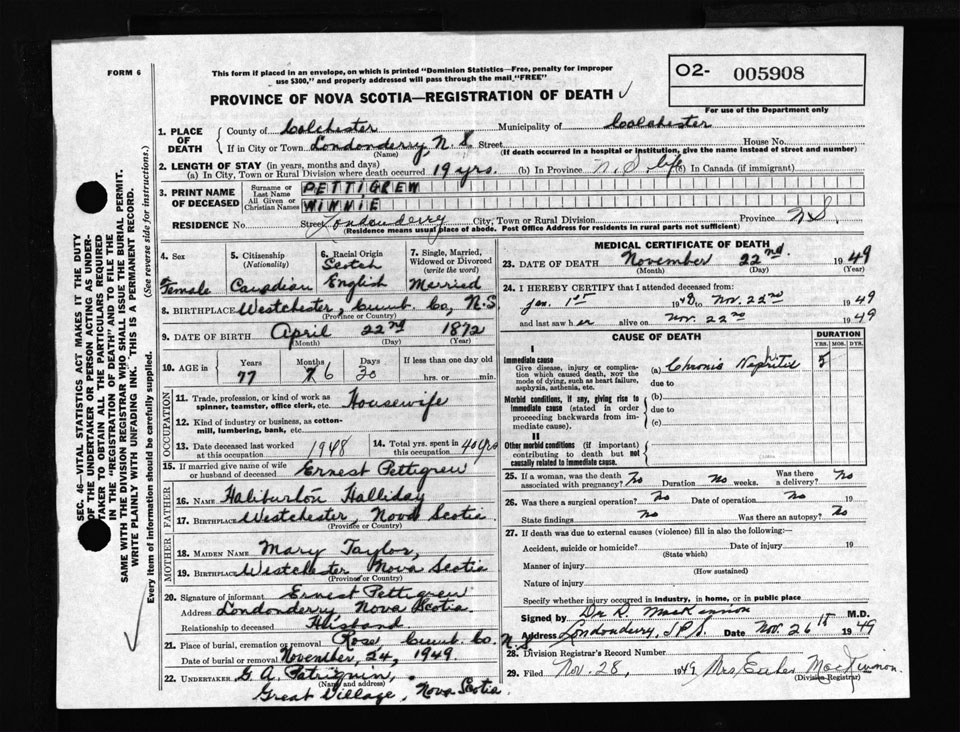 FORM 6
This form if placed in an envelope, on which is printed "Dominion Statistics—Free, penalty for improper
use $300," and properly addressed will pass through the mail "FREE"
PROVINCE OF NOVA SCOTIA—REGISTRATION OF DEATH ✓
O2- 005908
For use of the Department only
1. PLACE OF DEATH County of Colchester Municipality of Colchester
If in City or Town Londonderry, N. S. Street House No.
(Name) (If death occurred in a hospital or institution, give the name instead of street and number)
2. LENGTH OF STAY (in years, months and days)
(a) In City, Town or Rural Division where death occurred 19 yrs. (b) In Province N. S. life (c) In Canada (if immigrant)
3. PRINT NAME OF DECEASED Surname or Last Name PETTIGREW
All Given or Christian Names WINNIE
RESIDENCE No. Street Londonderry City, Town or Rural Division Province N.S.
(Residence means usual place of abode. Post Office Address for residents in rural parts not sufficient)
4. Sex Female
5. Citizenship (Nationality) Canadian
6. Racial Origin Scotch English
7. Single, Married, Widowed or Divorced (write the word) Married
8. BIRTHPLACE Westchester, Cumb. Co, N.S.
(Province or Country)
9. DATE OF BIRTH April 22nd 1872
(Month) (Day) (Year)
10. AGE in Years Months Days If less than one day old
77 6 30 hrs. or min.
OCCUPATION
11. Trade, profession, or kind of work as spinner, teamster, office clerk, etc. Housewife
12. Kind of industry or business, as cotton-mill, lumbering, bank, etc.
13. Date deceased last worked at this occupation 1948
14. Total yrs. spent in this occupation 40 yrs
15. If married give name of wife or husband of deceased Ernest Pettigrew
FATHER
16. NAME Haliburton Halliday
17. BIRTHPLACE Westchester, Nova Scotia
(Province or Country)
MOTHER
18. MAIDEN NAME Mary Taylor,
19. BIRTHPLACE Westchester Nova Scotia
(Province or Country)
20. Signature of informant Ernest Pettigrew
Address Londonderry Nova Scotia
Relationship to deceased Husband
21. Place of burial, cremation or removal Rose Cumb. Co. N.S.
Date of burial or removal November, 24, 1949.
22. UNDERTAKER G. A.
(Name and address)
Great Village, Nova Scotia.
MEDICAL CERTIFICATE OF DEATH
23. DATE OF DEATH November 22nd 1949
(Month) (Day) (Year)
24. I HEREBY CERTIFY that I attended deceased from:
Jan. 1st 1948 to Nov. 22nd 1949
and last saw her alive on Nov. 22nd 1949
CAUSE OF DEATH DURATION
YRS. MOS. DYS.
I
Immediate cause
Give disease, injury or complication which caused death, NOT the mode of dying, such as heart failure, asphyxia, asthenia, etc.
(a) Chronic 5
due to
Morbid conditions, if any, giving rise to immediate cause (stated in order proceeding backwards from immediate cause).
(b)
due to
(c)
II
Other morbid conditions (if important) contributing to death but not causally related to immediate cause.
25. If a woman, was the death associated with pregnancy? No Duration No weeks. Was there a delivery? No
26. Was there a surgical operation? No Date of operation No 19
State findings No Was there an autopsy? No
27. If death was due to external causes (violence) fill in also the following:
Accident, suicide or homicide? Date of injury 19
(State which)
Manner of injury
(How sustained)
Nature of injury
Specify whether injury occurred in industry, in home, or in public place
Signed by Dr D. MacKinnon M.D.
Address Londonderry, Date Nov. 26th 1949
28. Division Registrar's Record Number
29. Filed Nov. 28, 1949 Mrs MacKinnon.
(Division Registrar)
SEC. 46—VITAL STATISTICS ACT MAKES IT THE DUTY
OF THE UNDERTAKER OR PERSON ACTING AS UNDER-
TAKER TO OBTAIN ALL THE PARTICULARS REQUIRED
IN THE "REGISTRATION OF DEATH" AND TO FILE THE
SAME WITH THE DIVISION REGISTRAR WHO SHALL ISSUE THE BURIAL PERMIT.
WRITE PLAINLY WITH UNFADING INK. THIS IS A PERMANENT RECORD.
Every item of information should be carefully supplied. (See reverse side for instructions.)